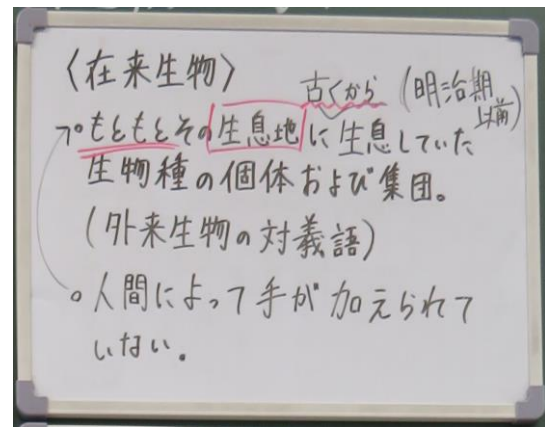 〈在来生物〉
古くから (明治期以前)
○もともとその生息地に生息していた
生物種の個体および集団。
(外来生物の対義語)
○人間によって手が加えられて
いない.